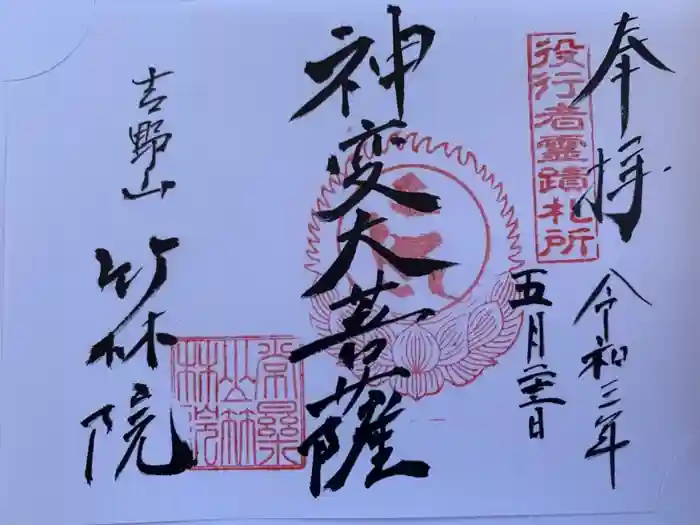 奉拝
役行者霊蹟札所
令和三年
五月二十三日
神変大菩薩
吉野山
竹林院